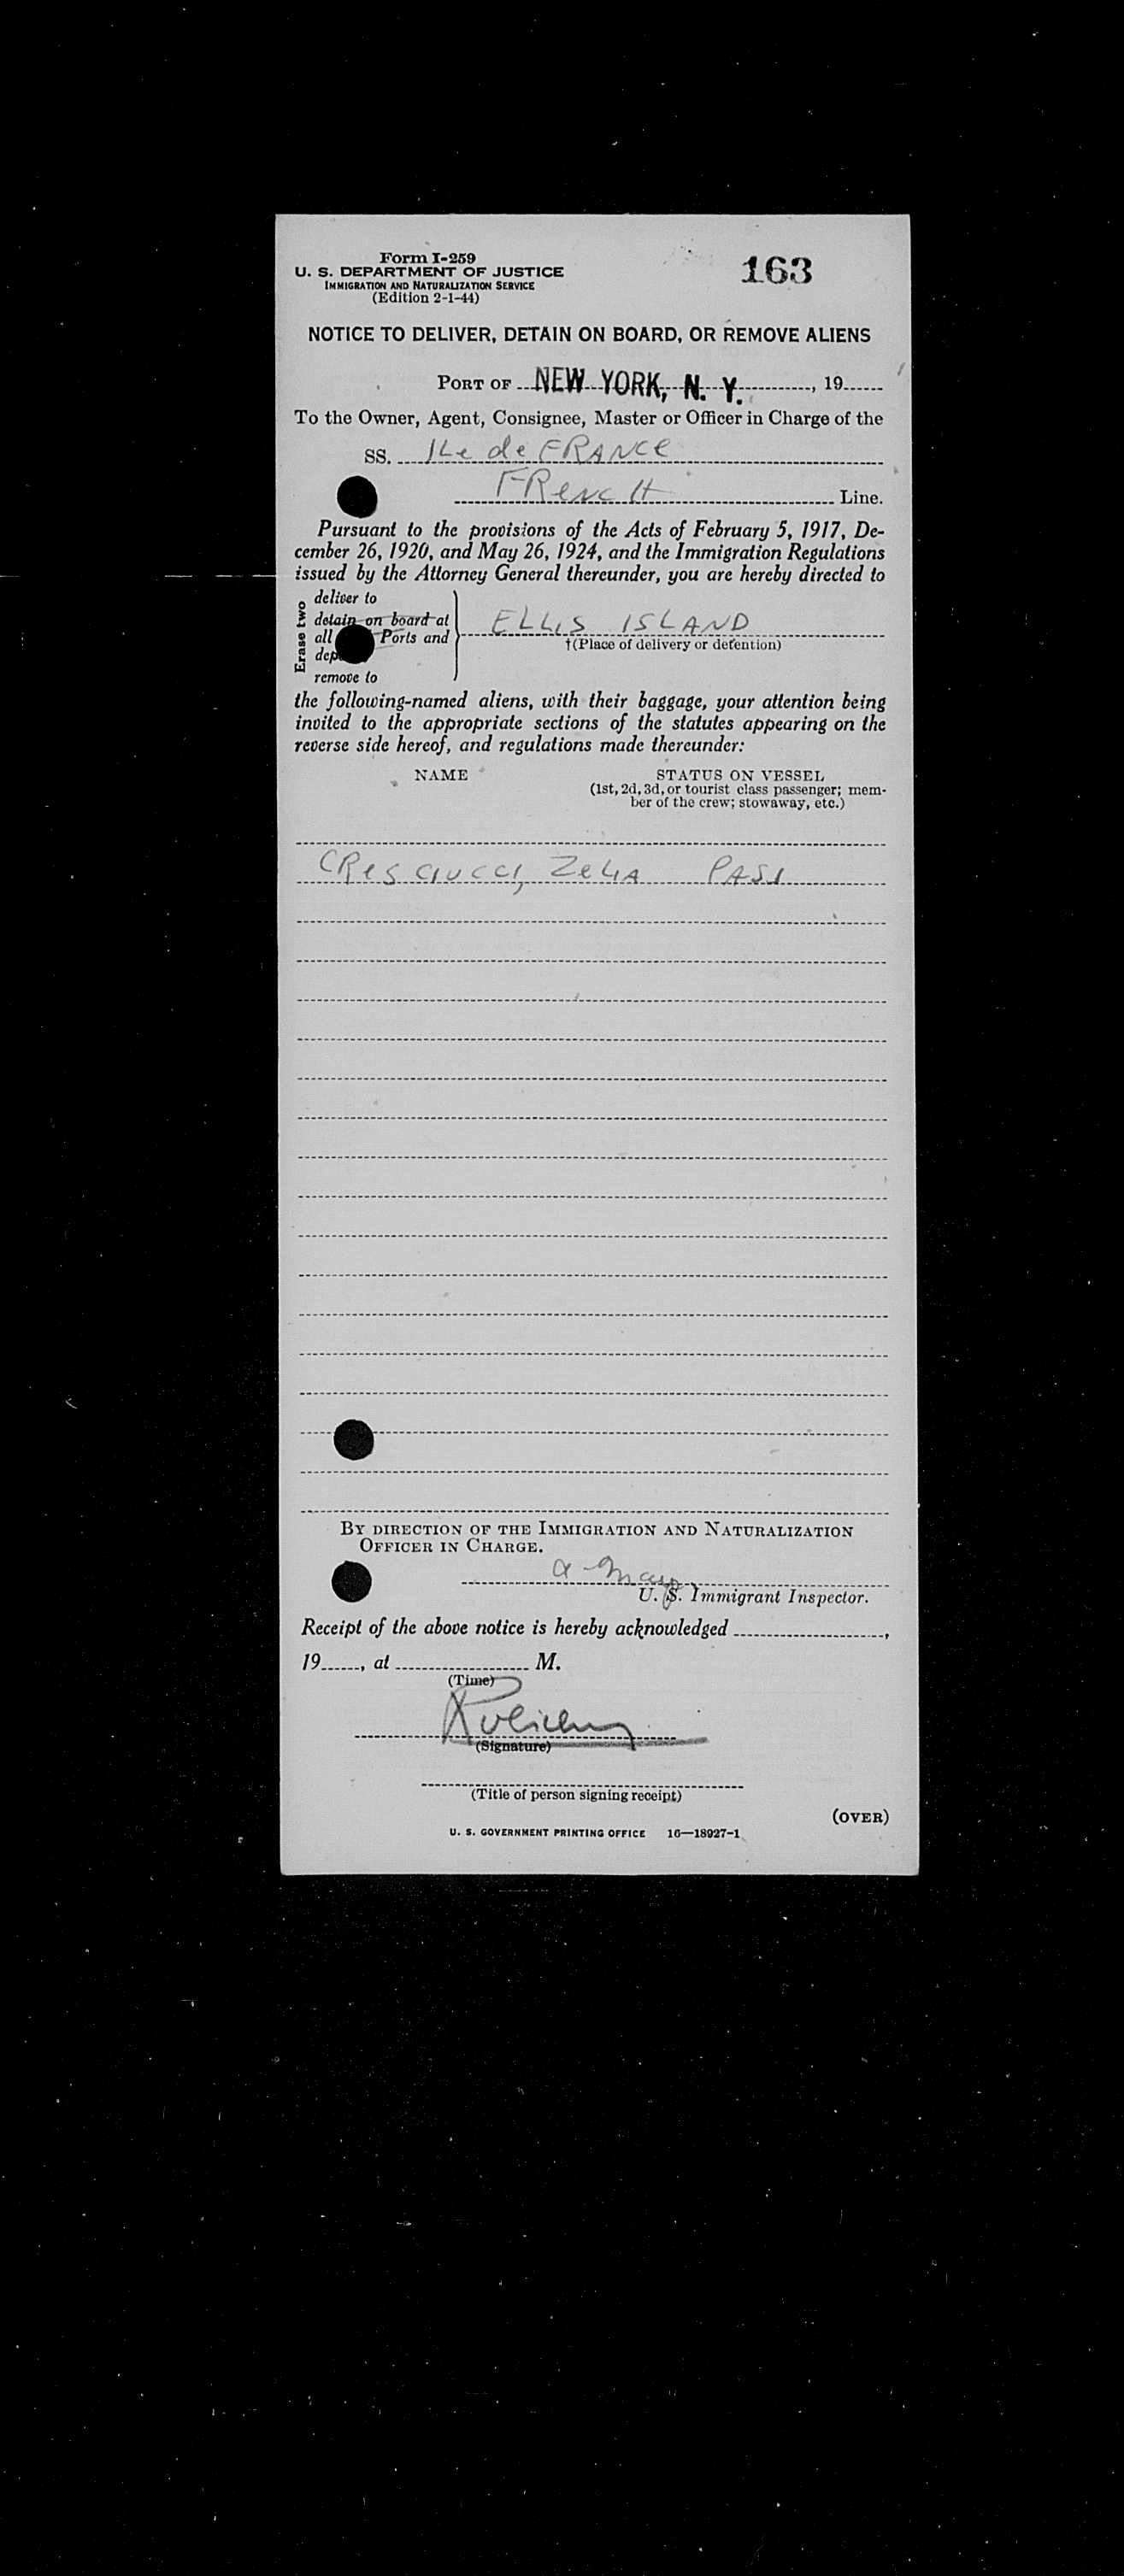 Form I-259
163
U. S. DEPARTMENT OF JUSTICE
IMMIGRATION AND NATURALIZATION SERVICE
(Edition 2-1-44)
NOTICE TO DELIVER, DETAIN ON BOARD, OR REMOVE ALIENS
PORT OF NEW YORK, N. Y. , 19
To the Owner, Agent, Consignee, Master or Officer in Charge of the
SS. ILe de FRANCe
FRencH Line.
Pursuant to the provisions of the Acts of February 5, 1917, De-
cember 26, 1920, and May 26, 1924, and the Immigration Regulations
issued by the Attorney General thereunder, you are hereby directed to
Erase two
deliver to
detain on board at
all Ports and
remove to
ELLIS ISLAND
†(Place of delivery or detention)
the following-named aliens, with their baggage, your attention being
invited to the appropriate sections of the statutes appearing on the
reverse side hereof, and regulations made thereunder:
NAME STATUS ON VESSEL
(1st, 2d, 3d, or tourist class passenger; mem-
ber of the crew; stowaway, etc.)
CResciucci, ZeliA PASS
BY DIRECTION OF THE IMMIGRATION AND NATURALIZATION
OFFICER IN CHARGE.
U. S. Immigrant Inspector.
Receipt of the above notice is hereby acknowledged ,
19 , at M.
(Time)
(Signature)
(Title of person signing receipt)
(OVER)
U. S. GOVERNMENT PRINTING OFFICE 16—18927-1